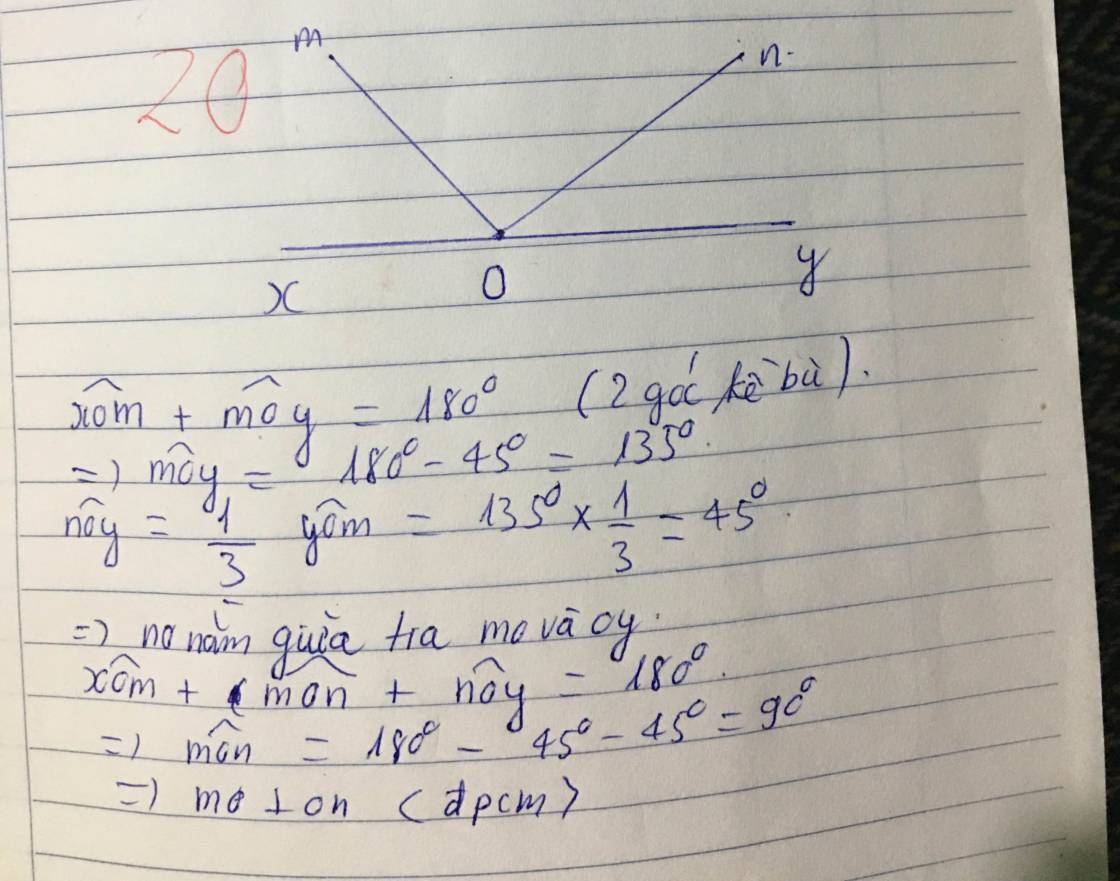 20
m
n
x
O
y
xôm + môy = 180⁰ (2 góc kề bù).
=) môy = 180⁰ - 45⁰ = 135⁰.
nôy = 1/3 yôm = 135⁰ × 1/3 = 45⁰.
=) no nằm giữa tra mo và oy.
xôm + môn + nôy = 180⁰.
=) môn = 180⁰ - 45⁰ - 45⁰ = 90⁰
=) mo ⊥ on (đpcm)